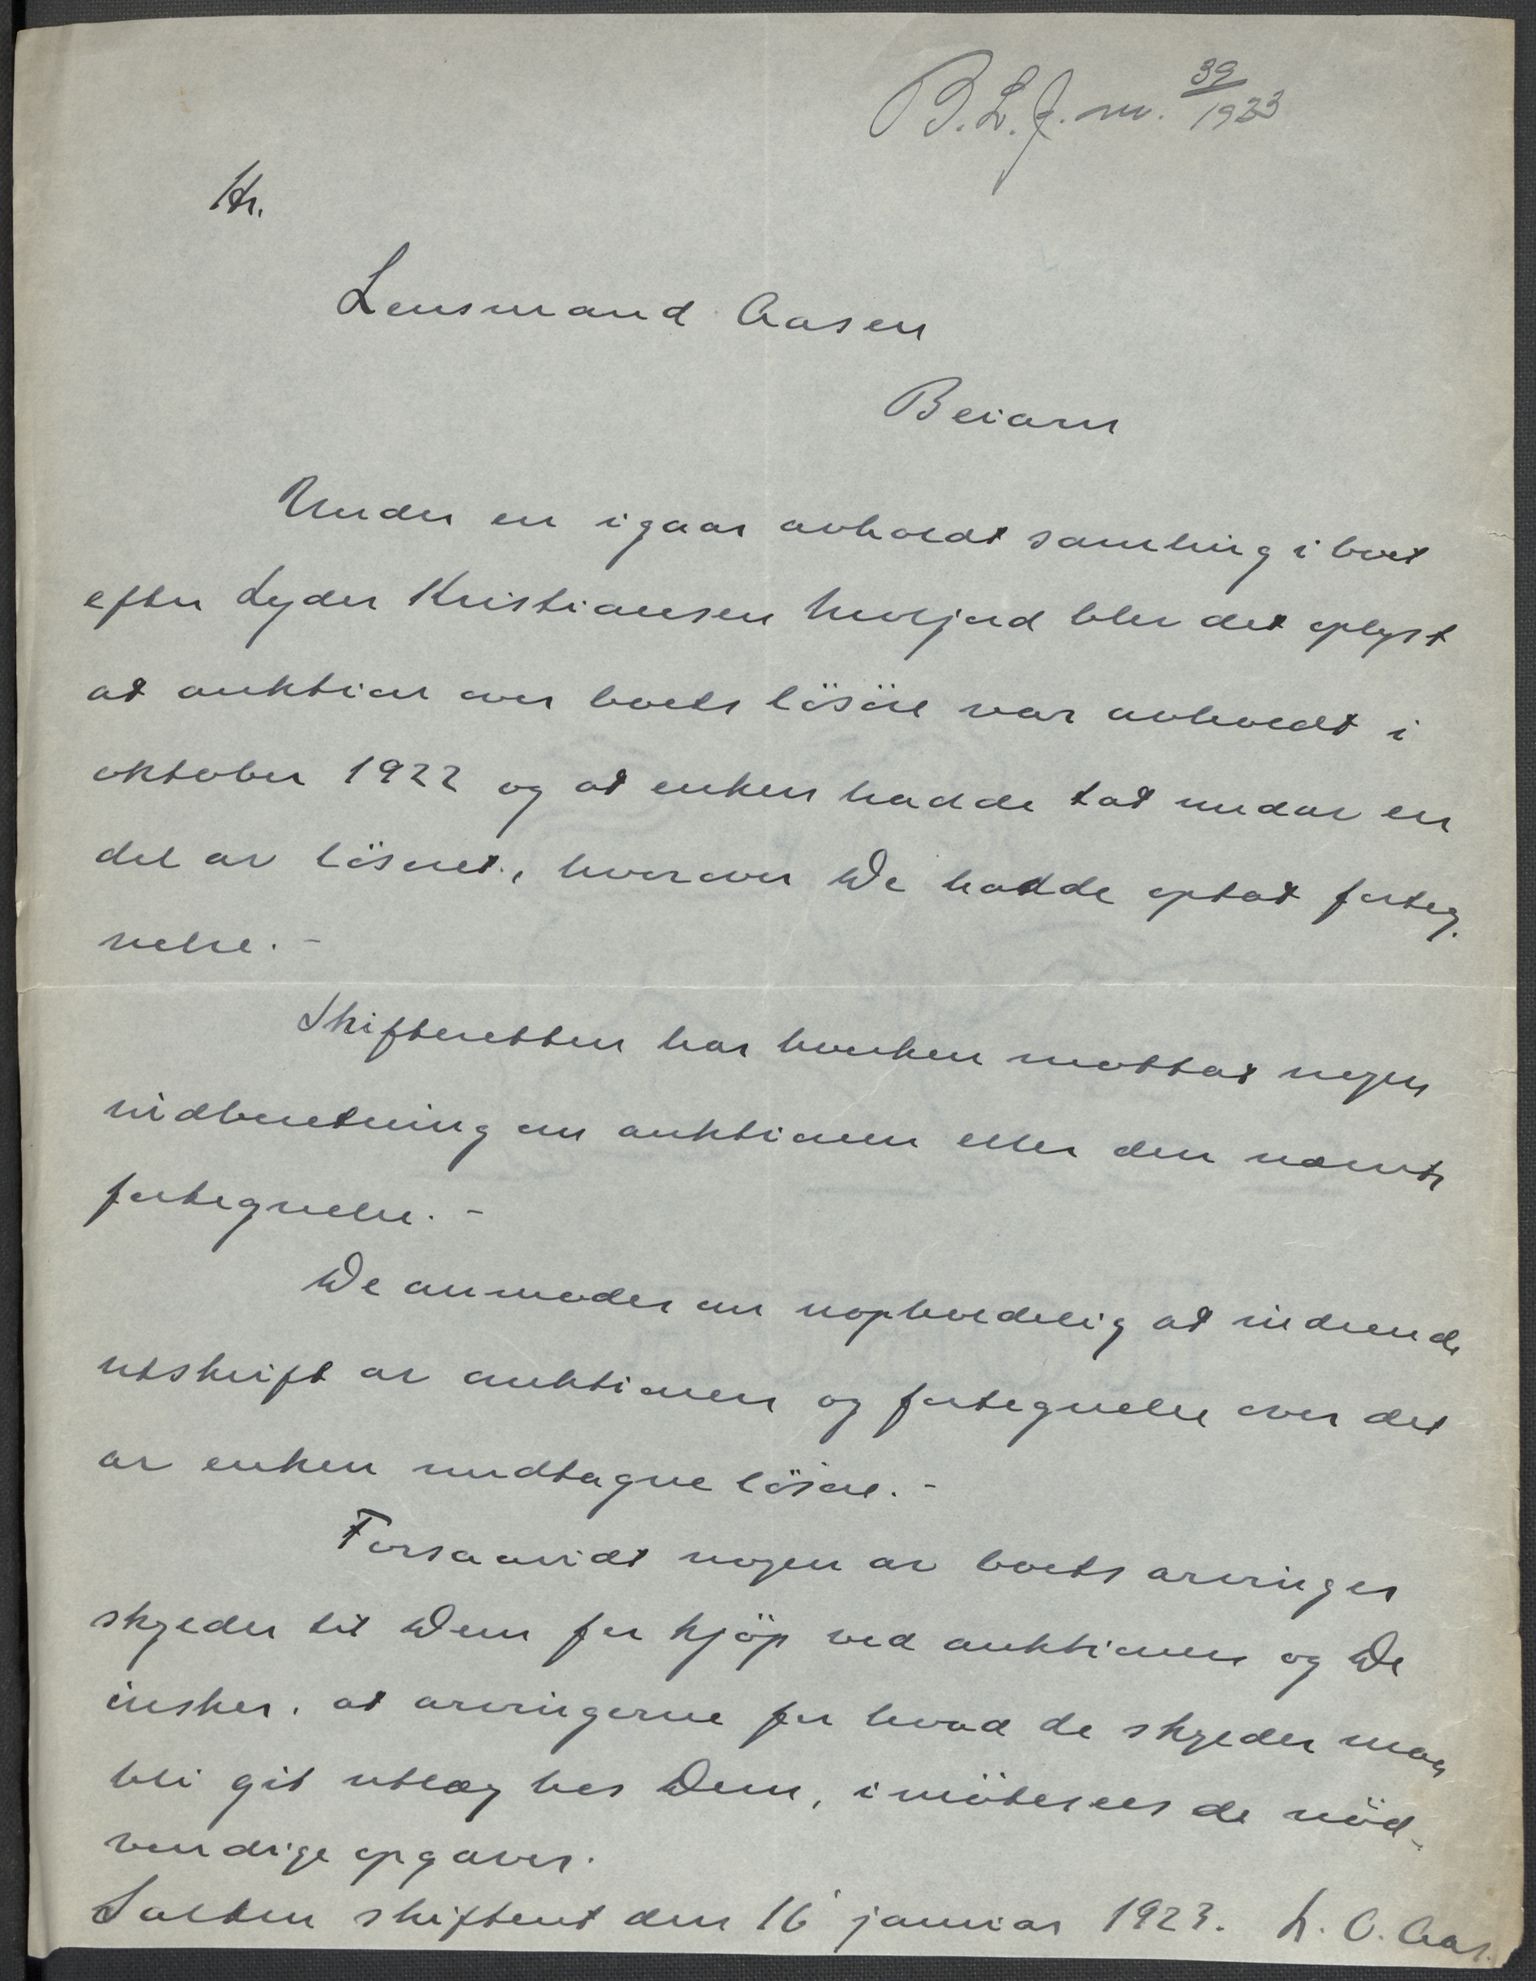 B. L. J. nr. 39/1923
Hr.
Lensmand Aasen
Beiarn
Under en igaar avholdt samling i boet
efter Lyder Kristiansen blev det oplyst
at auktion over boets lösöre var avholdt i
oktober 1922 og at enken hadde tat undav en
del av lösöret, hvorover De hadde optat forteg-
nelse. -
Skifteretten har hverken mottat nogen
indberetning om auktionen eller den nævnte
fortegnelse. -
De anmodes om uopholdelig at indsende
utskrift av auktionen og fortegnelse over det
av enken undtagne lösöre. -
Forsaavidt nogen av boets arvinger
skylder til Dem for kjöp ved auktionen og De
önsker, at arvingerne for hvad de skylder maa
bli git utlæg hos Dem, imötesees de nöd-
vendige opgaver.
Salten skifteret den 16 januar 1923. L. O. Aas.